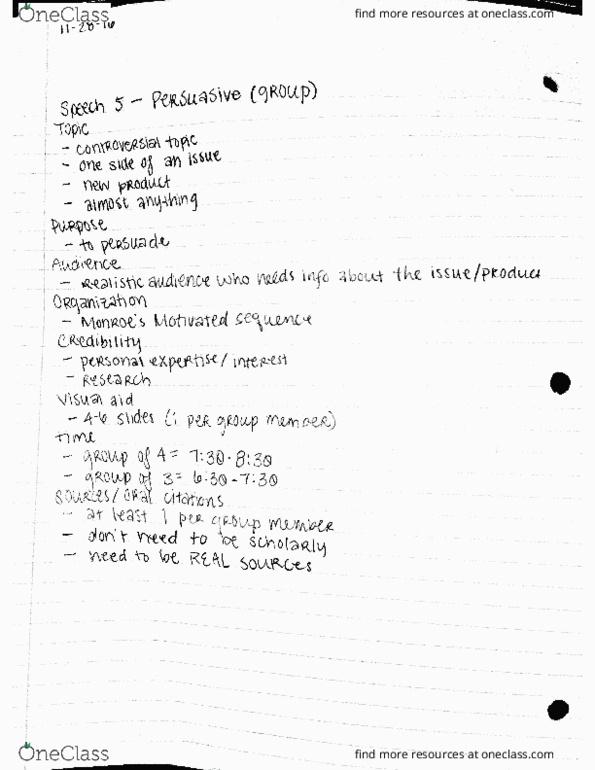 OneClass
find more resources at oneclass.com
11-28-16
Speech 5 - Persuasive (group)
Topic
- controversial topic
- one side of an issue
- new product
- almost anything
Purpose
- to persuade
Audience
- Realistic audience who needs info about the issue/product
Organization
- Monroe's Motivated sequence
Credibility
- personal expertise/interest
- Research
Visual aid
- 4-6 slides (1 per group member)
Time
- group of 4 = 7:30-8:30
- group of 3 = 6:30-7:30
Sources/Oral citations
- at least 1 per group member
- don't need to be scholarly
- need to be REAL SOURCES
OneClass
find more resources at oneclass.com